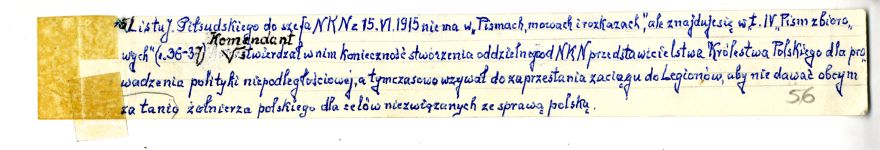 *5) Listu J. Piłsudskiego do szefa NKN z 15.VI.1915 nie ma w „Pismach, mowach i rozkazach”, ale znajduje się w t. IV „Pism zbioro-
Komendant
wych” (s. 36-37) stwierdzał w nim konieczność stworzenia oddzielnego od NKN przedstawicielstwa Królestwa Polskiego dla pro-
wadzenia polityki niepodległościowej, a tymczasowo wzywał do zaprzestania zaciągu do Legionów, aby nie dawać obcym
za tanio żołnierza polskiego dla celów niezwiązanych ze sprawą polską.
56